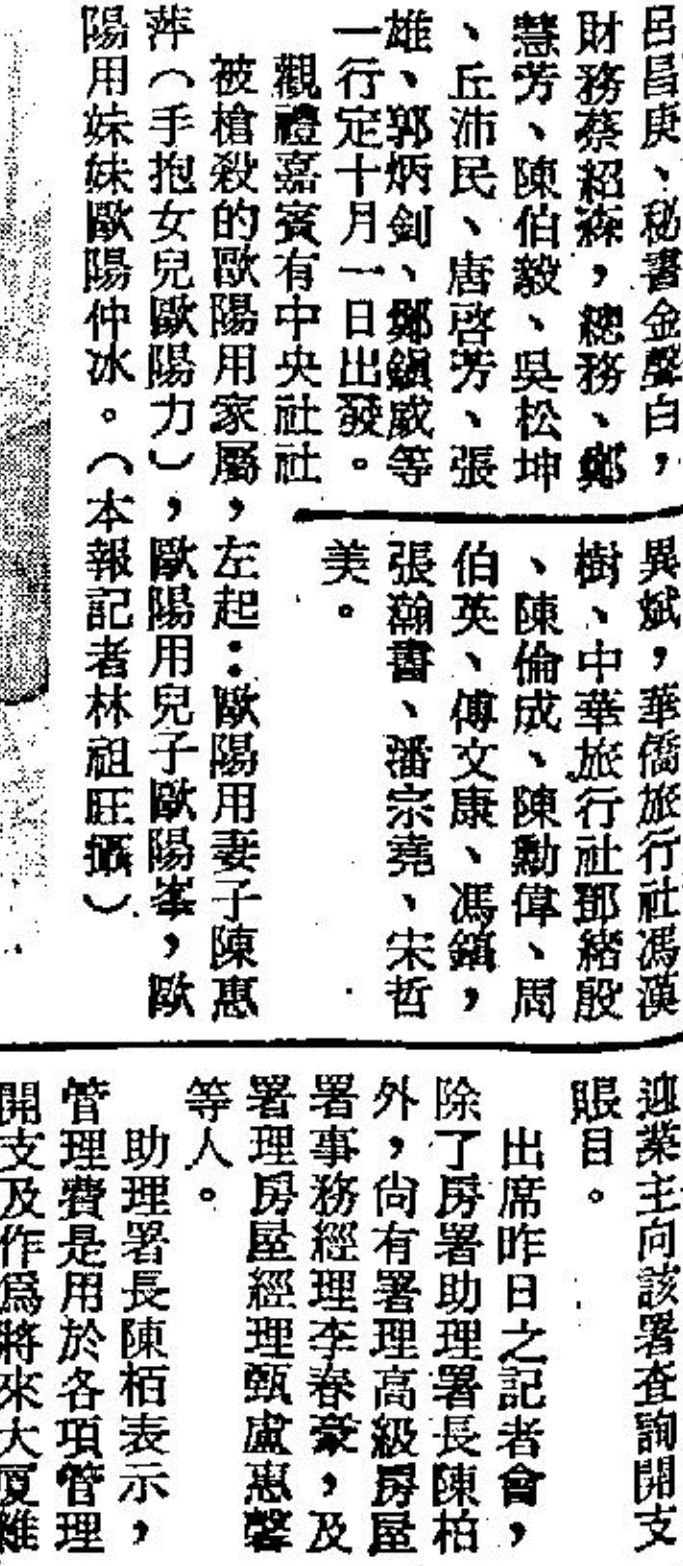 呂昌庚、秘書金聲白，
財務蔡紹森，總務、鄭
慧芳、陳伯毅、吳松坤
、丘沛民、唐啓芳、張
雄、郭炳釗、鄭鎭威等
一行定十月一日出發。
觀禮嘉賓有中央社社
異斌，華僑旅行社馮漢
樹、中華旅行社鄧緒殷
、陳倫成、陳勳偉、周
伯英、傅文康、馮鎬，
張瀚書、潘宗堯、宋哲
美。
被槍殺的歐陽用家屬，左起：歐陽用妻子陳惠
萍（手抱女兒歐陽力），歐陽用兒子歐陽峯，歐
陽用妹妹歐陽仲冰。（本報記者林祖旺攝）
迎業主向該署查詢開支
賬目。
出席昨日之記者會，
除了房署助理署長陳柏
外，尚有署理高級房屋
署事務經理李春豪，及
署理房屋經理甄盧惠馨
等人。
助理署長陳栢表示，
管理費是用於各項管理
開支及作爲將來大厦維